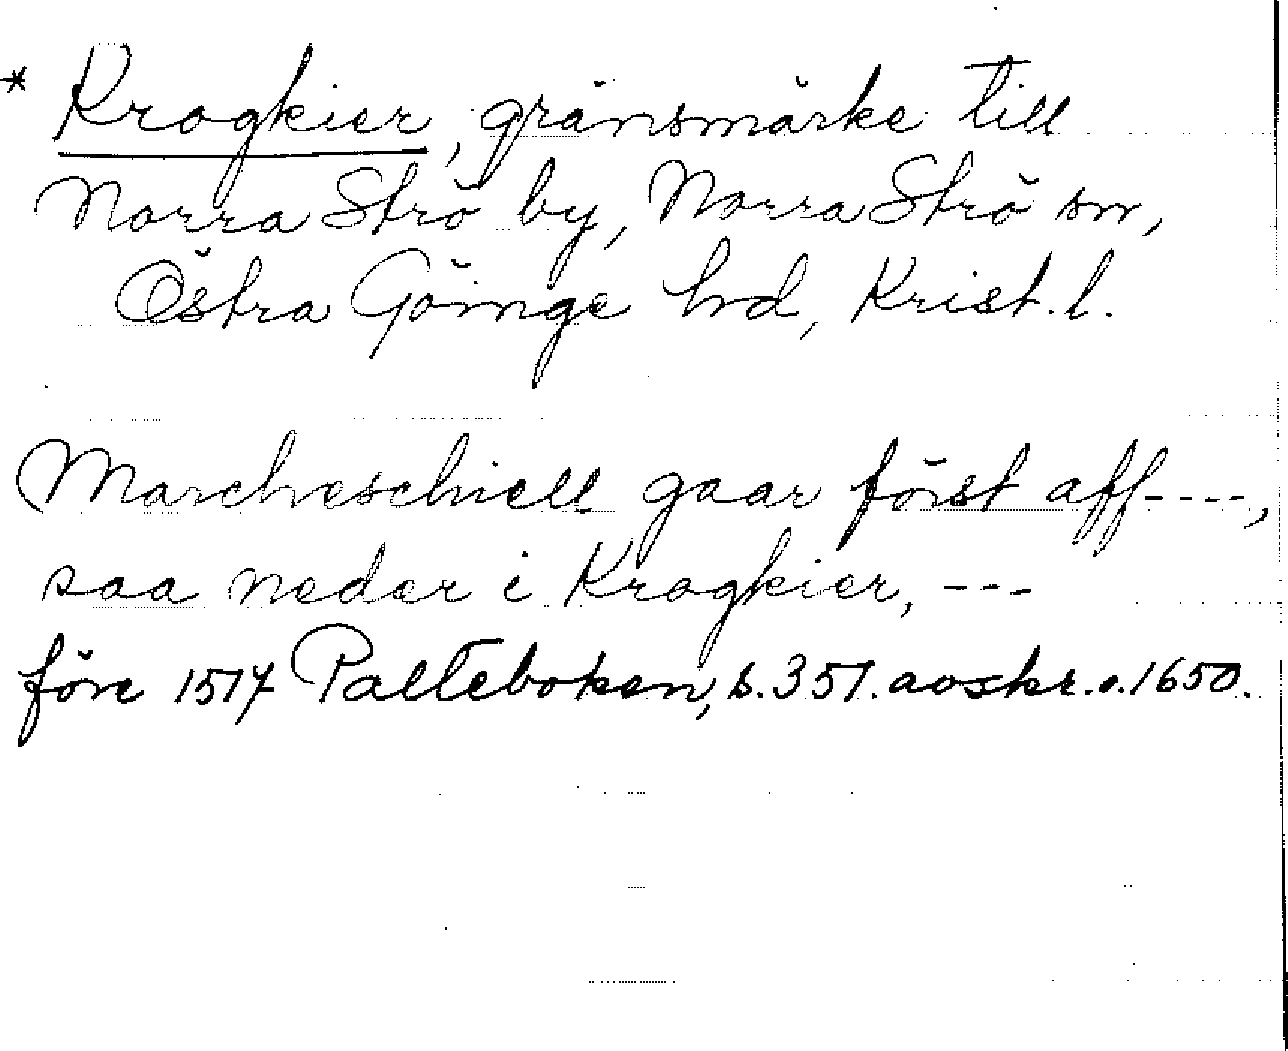 * Krogkier, gränsmärke till
Norra Strö by, Norra Strö sn,
Östra Göinge hd, Krist. l.
Marcheschiell gaar först aff----,
saa neder i Krogkier, ---
före 1514 Palteboken, s. 351. avskr. o. 1650.